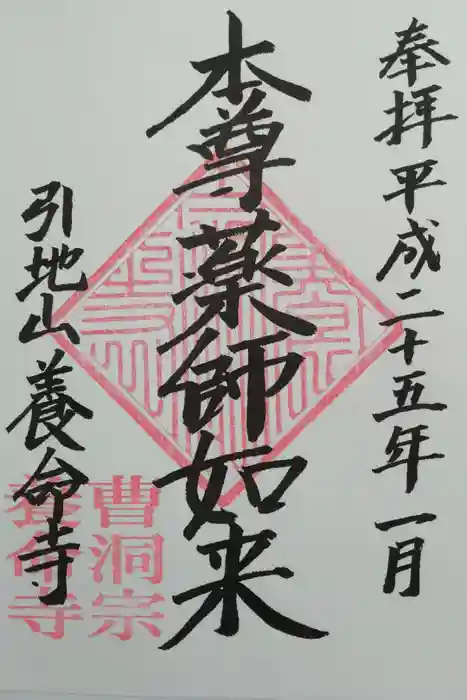 奉拝平成二十五年一月
本尊薬師如来
引地山養命寺
曹洞宗
養命寺